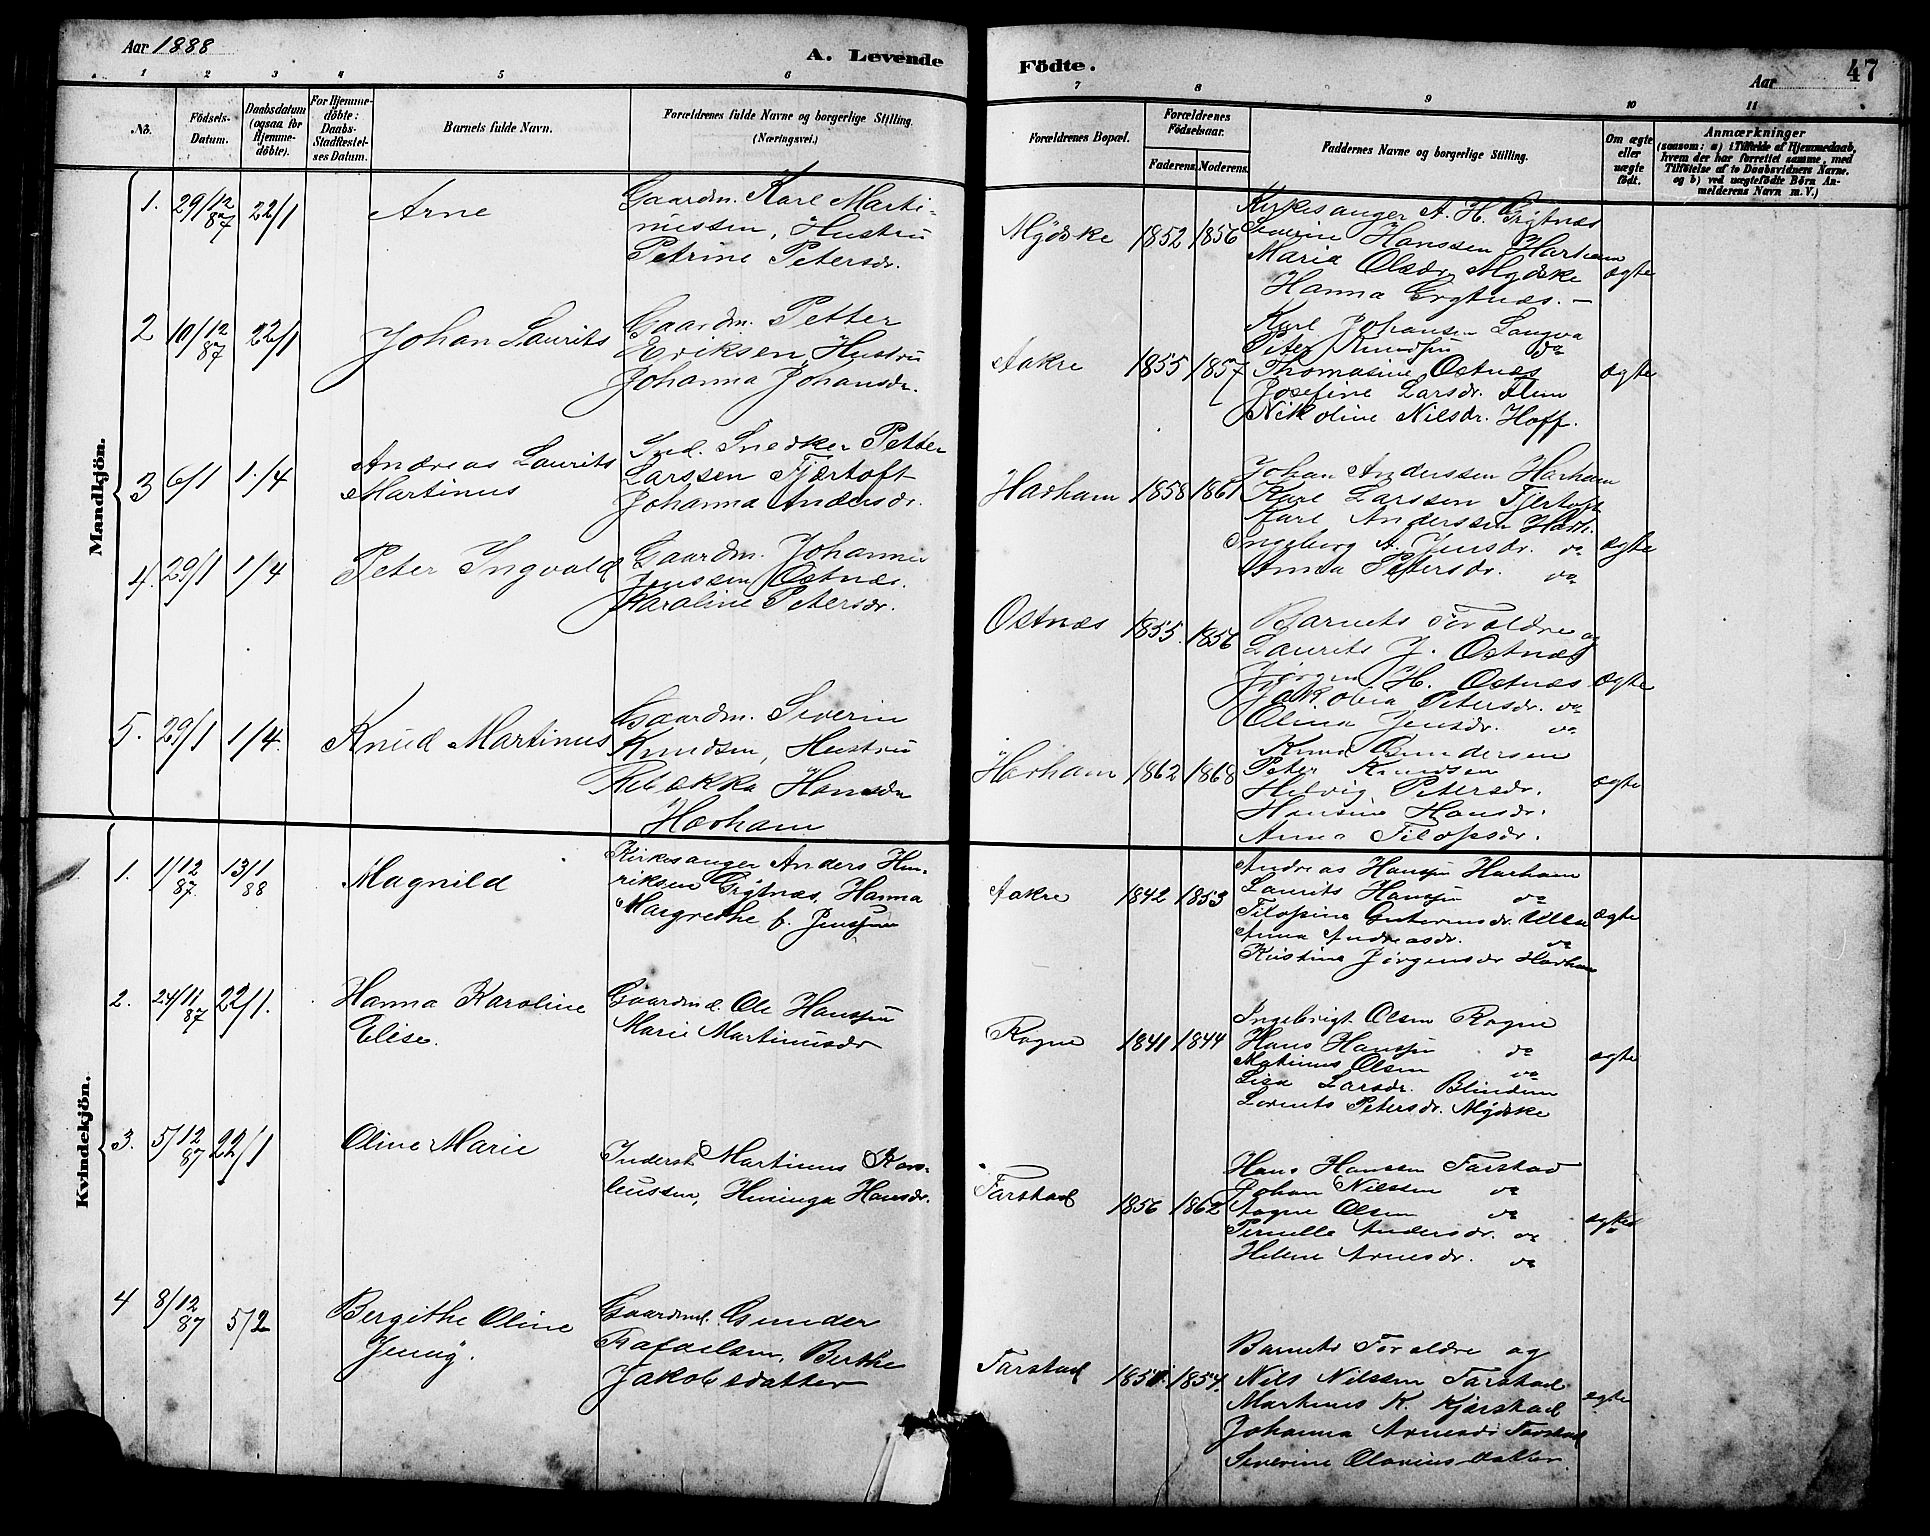 Aar 1888
A. Levende
Födte.
Aar
47
1 2 3 4 5 6
7 8 9 10 11
No.
Födsels-
Datum.
Daabsdatum
(ogsaa for
Hjemme-
döbte).
For Hjemme-
döbte:
Daabs-
Stadfæstel-
ses Datum.
Barnets fulde Navn.
Forældrenes fulde Navne og borgerlige Stilling.
(Næringsvei.)
Forældrenes Bopæl.
Forældrenes
Födselsaar.
Faderens. Moderens.
Faddernes Navne og borgerlige Stilling.
Om ægte
eller
uægte
födt.
Anmærkninger
(saasom: a) i Tilfælde af Hjemmedaab,
hvem der har forrettet samme, med
Tilföielse af to Daabsvidners Navne.
og b) ved uægtefödte Börn An-
melderens Navn m. V.)
Mandkjön.
1. 29/12 87 22/1
Arne
Gaardm. Karl Marti-
nussen, Hustru
Petrine Petersdr.
Mydske 1852 1856
Kirkesanger A. H. Grytnæs
Hanssen Harham
Maria Olsdr. Mydske
Hanna Grytnæs. –
ægte
2 10/12 87 22/1
Johan Laurits
Gaardm. Petter
Eriksen, Hustru
Johanna Johansdr.
Aakre 1855 1857
Karl Johansen Langva
Peter Knudsen do
Thomasine Ostnæs
Josefine Larsdr. Flem
Nikoline Nilsdr. Hoff.
ægte
3 6/1 1./4
Andreas Laurits
Martinus
Ind. Snedker Petter
Larssen Fjærtoft
Johanna Andersdr.
Harham 1858 1861
Johan Anderssen Harham
Karl Larssen Fjertoft
Karl Anderssen Harh.
Ingeborg A. Jensdr. do
Anna Petersdr. do
ægte
4. 29/1 1/4
Peter Ingvald
Gaardm. Johannes
Jenssen Ostnæs.
Karoline Petersdr.
Ostnæs 1855. 1856
Barnets Forældre og
Laurits J. Ostnæs
Jørgen H. Ostnæs
Jakobia Petersdr. do
Olina Jensdr. do
ægte
5. 29/1 1/4.
Knud Martinus
Gaardm. Severin
Knudsen, Hustru
Rebekka Hansdr
Harham
Harham 1862 1868
Knud Gundersen
Peter Knudsen
Helvig Petersdr.
Hansine Hansdr.
Anna Filopsdr.
ægte
Kvindekjön.
1. 1/12 87. 13/1 88
Magnild
Kirkesanger Anders Hen-
riksen Grytnæs, Hanna
Margrethe f. Jenssen
Aakre 1842 1853
Andreas Hanssen Harham
Laurits Hanssen do
Filopine Gutormsdr. Ulla
Anna Andreasdr. do
Kristine Jørgensdr Harham
ægte
2. 24/11 87 22/1.
Hanna Karoline
Elise.
Gaardmd. Ole Hanssen
Marie Martinusdr
Rogne 1841 1844
Ingebrigt Olsen Rogne
Hans Hanssen do
Matinus Olsen do
Lisa Larsdr. Blindem
Petersdr. Mydske
ægte
3. 5/12 87 22/1
Oline Marie
Inderst Martinus
Hansdr.
Farstad 1856 1862
Hans Hanssen Farstad
Johan Nilssen do
Aagne Olsen do
Pernella Andersdr. do
Helene Arnesdr. do
ægte
4 8/12 87 5/2
Bergithe Oline
Jenny.
Gaardmd. Gunder
Rafaelsen, Berthe
Jakobsdatter
Farstad 1851. 1854.
Barnets Forældre og
Nils Nilssen Farstad
Martinus K. Kjærstad
Johanna Arnesdr Farstad
Severine Olavius datter.
ægte